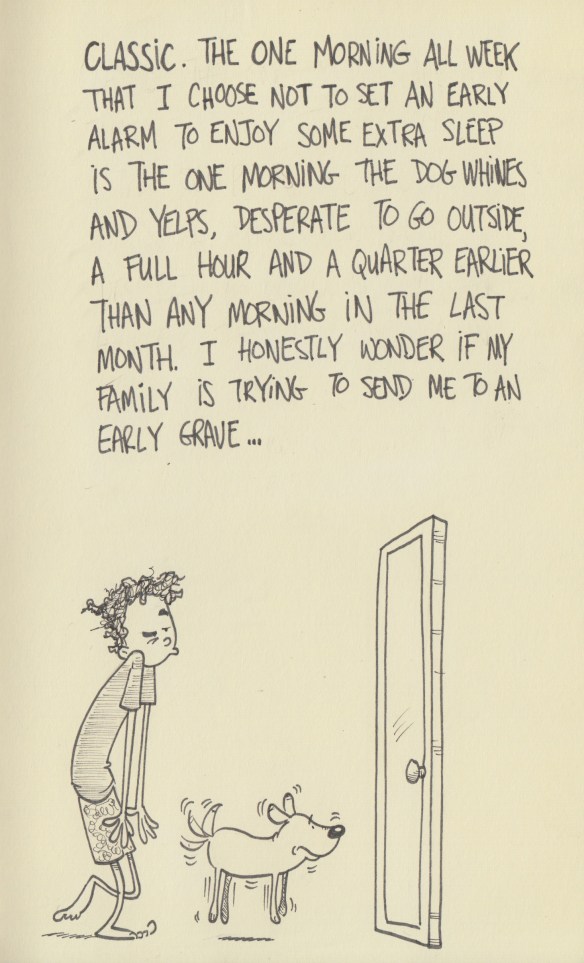 CLASSIC. THE ONE MORNING ALL WEEK
THAT I CHOOSE NOT TO SET AN EARLY
ALARM TO ENJOY SOME EXTRA SLEEP
IS THE ONE MORNING THE DOG WHINES
AND YELPS, DESPERATE TO GO OUTSIDE,
A FULL HOUR AND A QUARTER EARLIER
THAN ANY MORNING IN THE LAST
MONTH. I HONESTLY WONDER IF MY
FAMILY IS TRYING TO SEND ME TO AN
EARLY GRAVE...